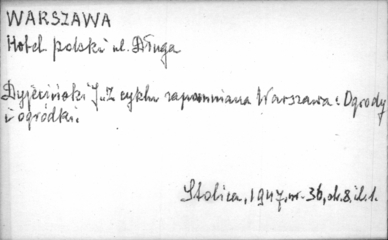 WARSZAWA
Hotel polski ul. Długa
J. Z cyklu zapomniana Warszawa: Ogrody
i ogródki.
Stolica, 1947, nr. 36, str. 8, il. 1.